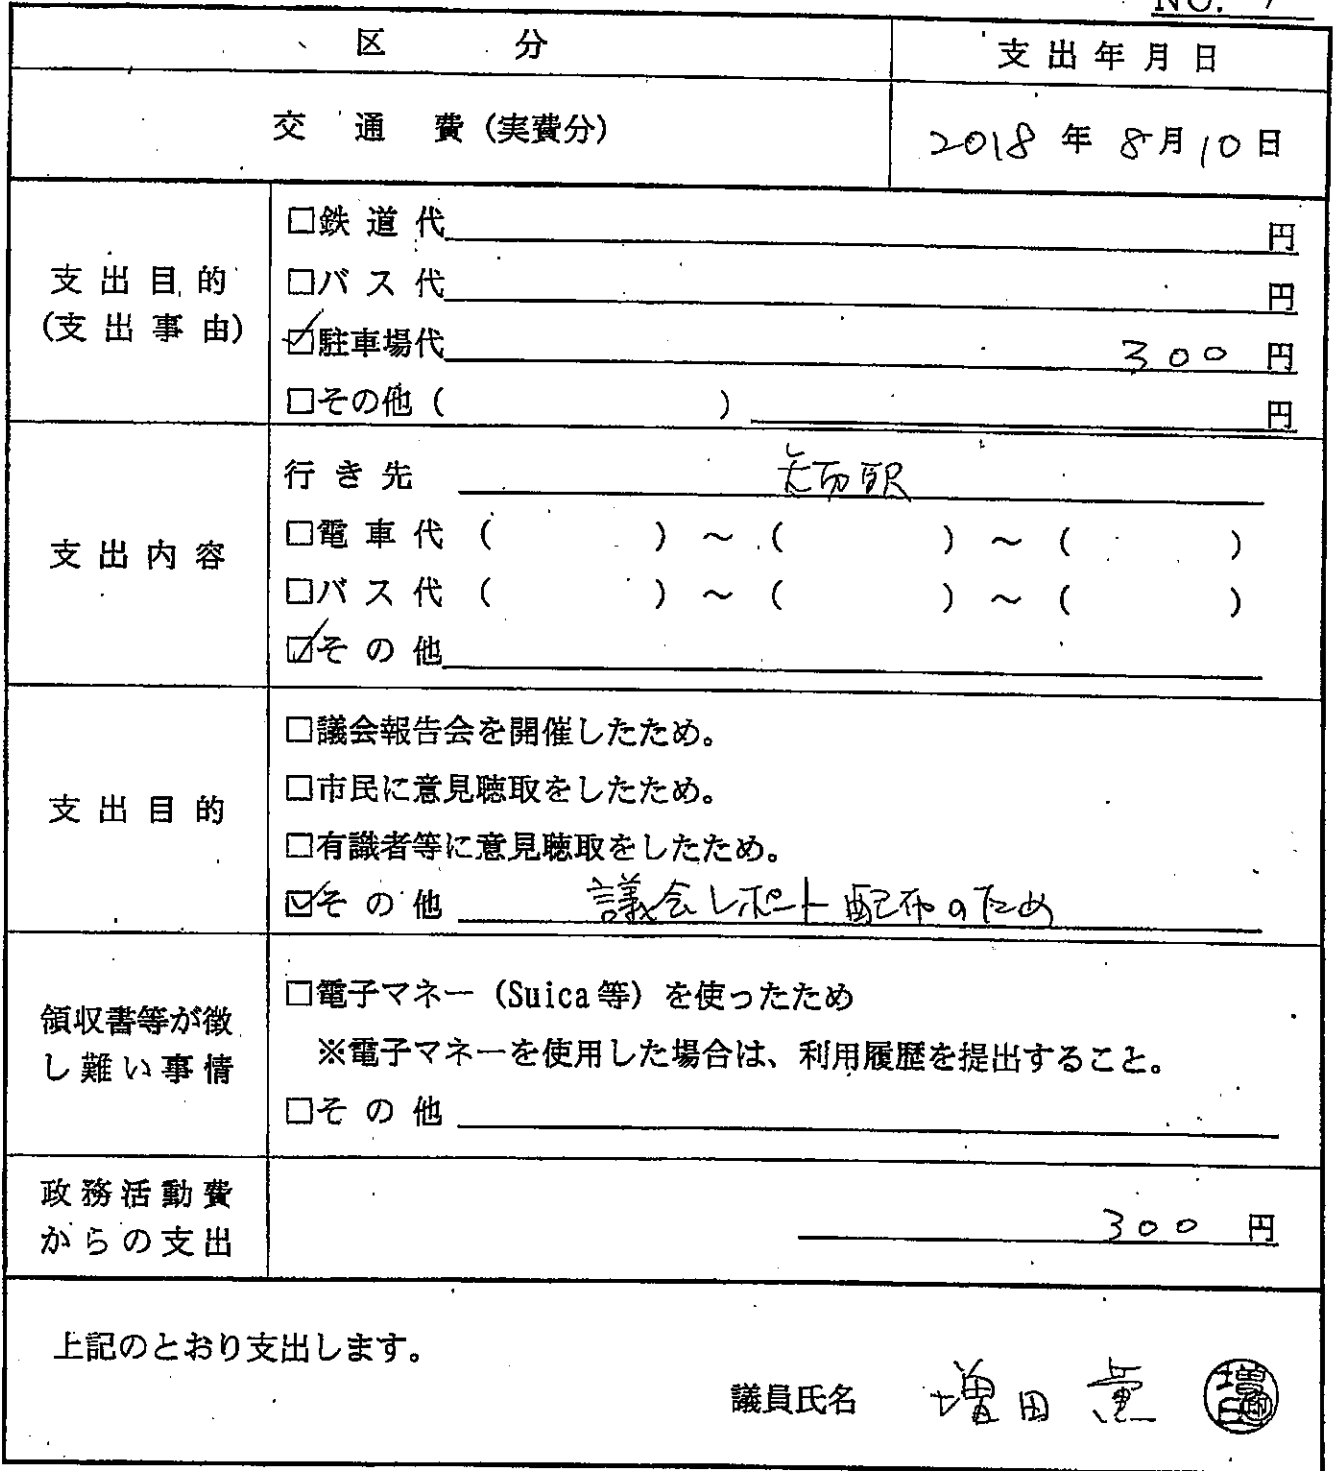 NO. 7
区 分
支出年月日
交 通 費 (実費分)
2018 年 8月 10 日
支出目的
(支出事由)
□鉄 道 代 円
□バ ス 代 円
☑駐車場代 300 円
□その他 ( ) 円
支出内容
行き先 矢切駅
□電 車 代 ( ) ～ ( ) ～ ( )
□バ ス 代 ( ) ～ ( ) ～ ( )
☑そ の 他
支出目的
□議会報告会を開催したため。
□市民に意見聴取をしたため。
□有識者等に意見聴取をしたため。
☑そ の 他 議会レポート配布のため
領収書等が徴
し難い事情
□電子マネー (Suica等) を使ったため
※電子マネーを使用した場合は、利用履歴を提出すること。
□そ の 他
政務活動費
からの支出
300 円
上記のとおり支出します。
議員氏名 増田 薫